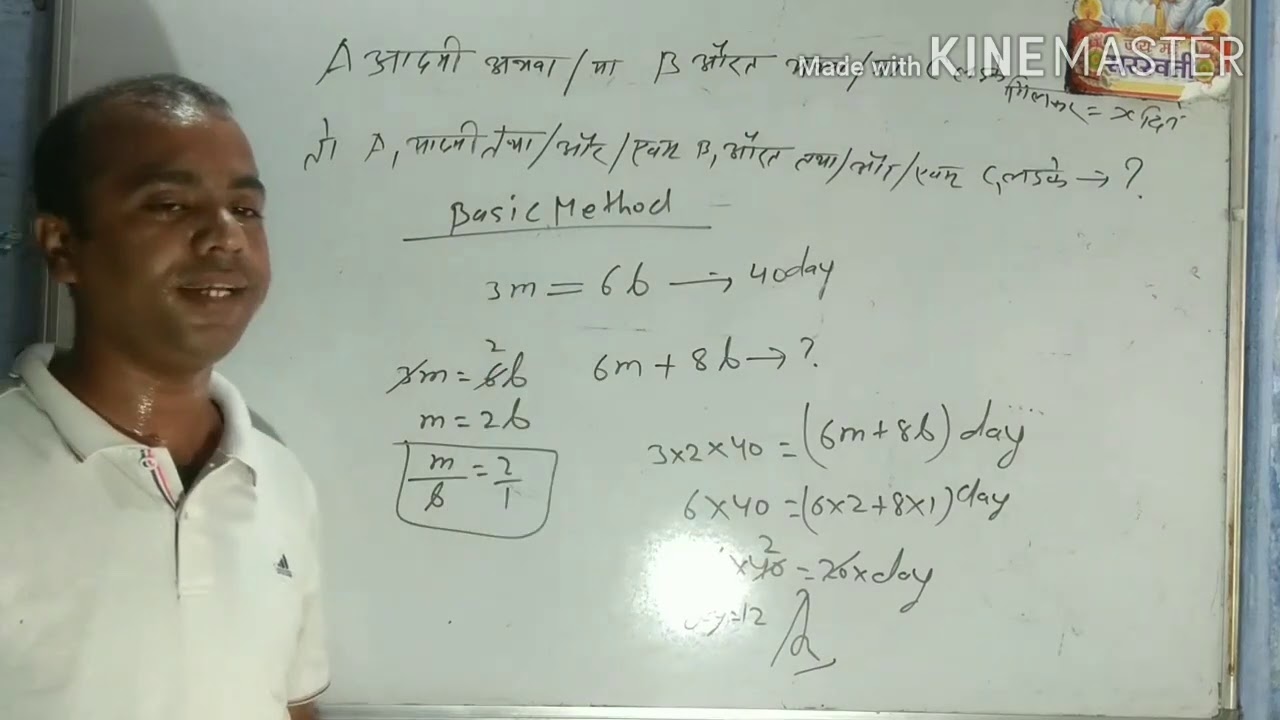 A आदमी अथवा/या B औरत
Made with KINEMASTER
मिलकर = x दिन
तो A, आदमी तथा/और/एवम B, औरत तथा/और/एवम C, लडके → ?
Basic Method
3m = 6b → 40day
3m = 6b 2
6m + 8b → ?
m = 2b
m/b = 2/1
3×2×40 = (6m+8b) day
6×40 = (6×2+8×1) day
×40 2 = 20×day
=12